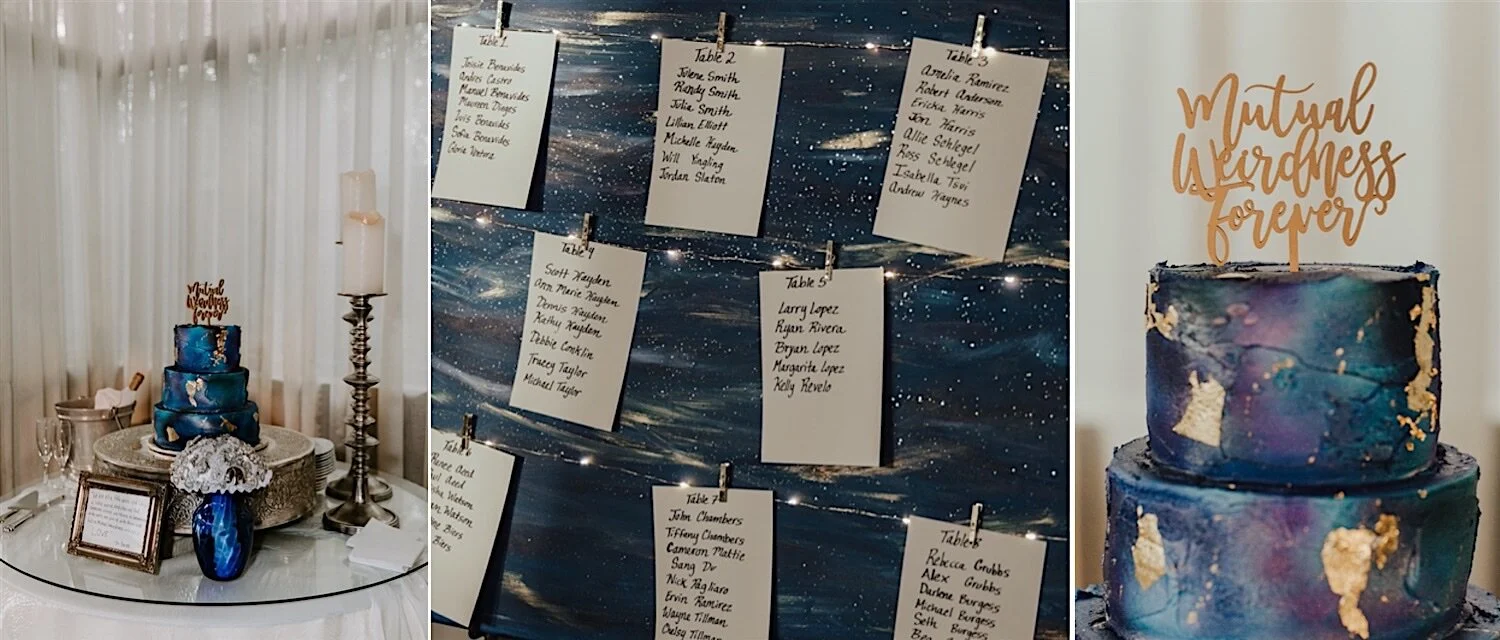 Mutual
Weirdness
Forever
Table 1
Josie Benavides
Andres Castro
Manuel Benavides
Maureen Dieges
Luis Benavides
Sofia Benavides
Gloria Ventura
Table 2
Jolene Smith
Randy Smith
Julia Smith
Lillian Elliott
Michelle Hayden
Will Yingling
Jordan Slaton
Table 3
Amelia Ramirez
Robert Anderson
Ericka Harris
Jon Harris
Allie Schlegel
Ross Schlegel
Isabella Tsvi
Andrew Haynes
Table 4
Scott Hayden
Ann Marie Hayden
Dennis Hayden
Kathy Hayden
Debbie Conklin
Tracey Taylor
Michael Taylor
Table 5
Larry Lopez
Ryan Rivera
Bryan Lopez
Margarita Lopez
Kelly Revelo
Table 6
Watson
Watson
Biers
Biers
Table 7
John Chambers
Tiffany Chambers
Cameron Mattie
Sang Dv
Nick Pagliaro
Ervin Ramirez
Wayne Tillman
Chelsy Tillman
Table 8
Rebecca Grubbs
Alex Grubbs
Darlene Burgess
Michael Burgess
Seth Burgess
Mutual
Weirdness
Forever